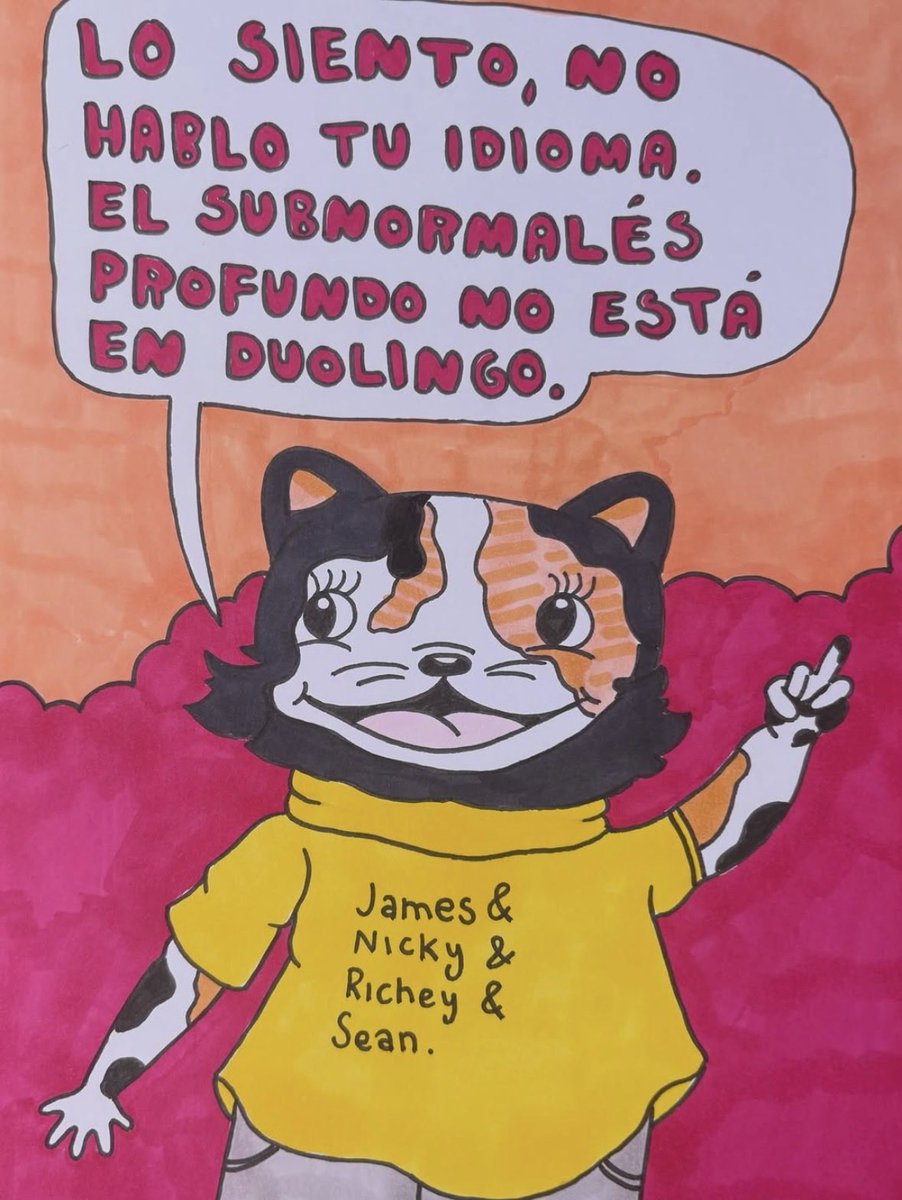 LO SIENTO, NO
HABLO TU IDIOMA.
EL SUBNORMALÉS
PROFUNDO NO ESTÁ
EN DUOLINGO.
James &
Nicky &
Richey &
Sean.